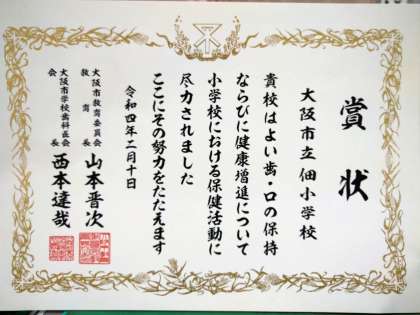 賞状
大阪市立佃小学校
貴校はよい歯・口の保持
ならびに健康増進について
小学校における保健活動に
尽力されました
ここにその努力をたたえます
令和四年二月十日
大阪市教育委員会
教育長 山本晋次
大阪市学校歯科医会
会長 西本達哉